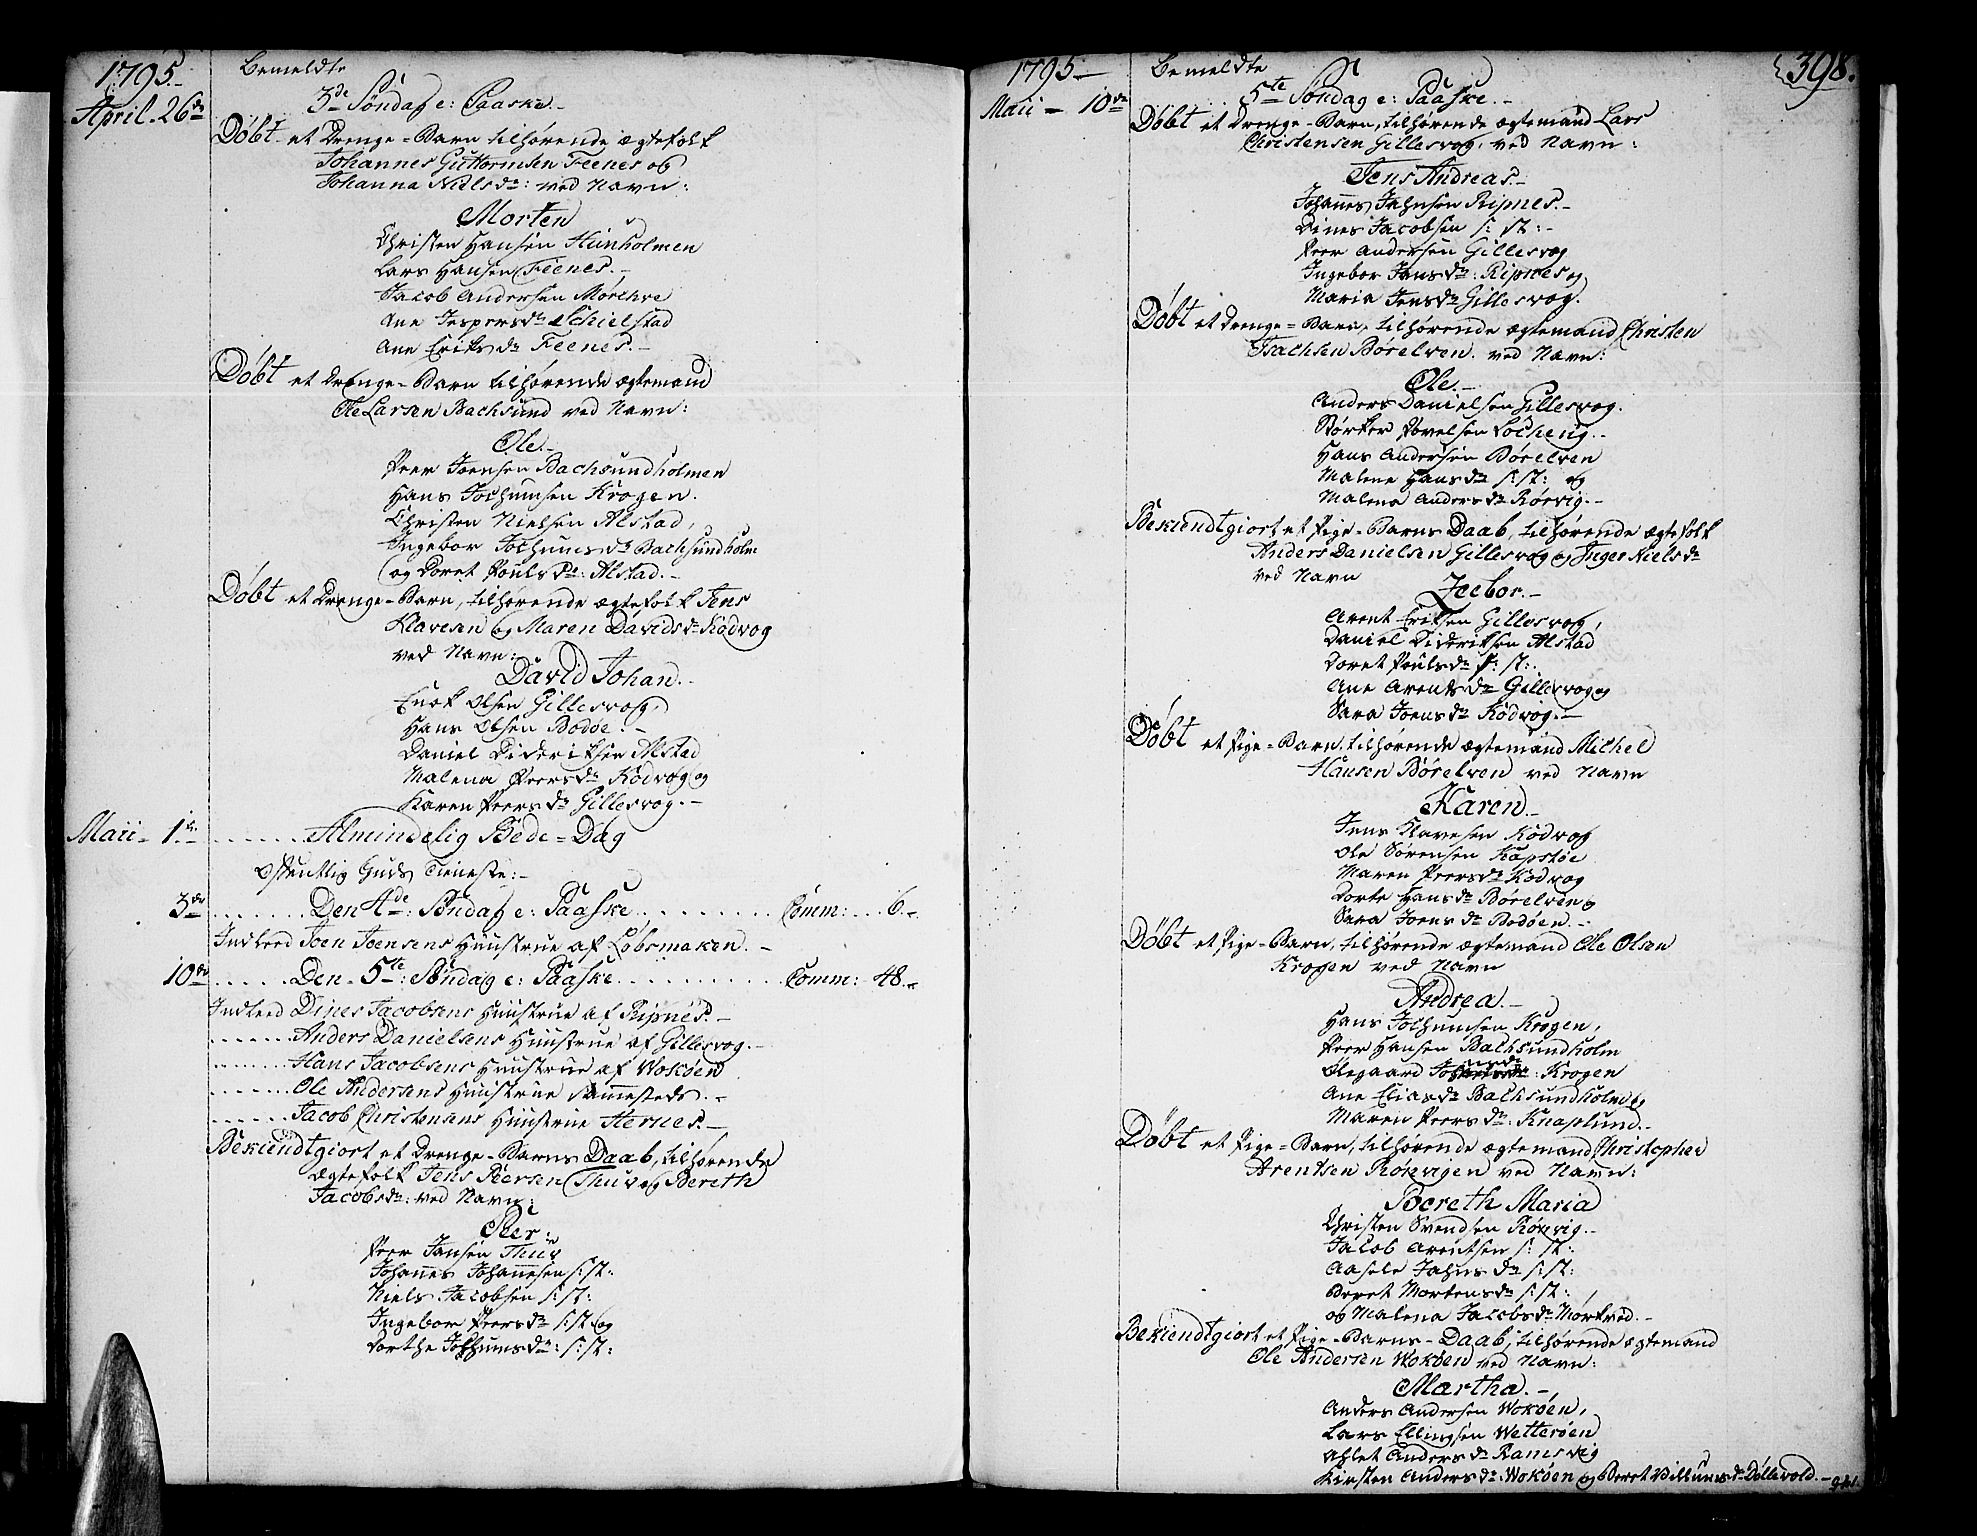 1795.
April. 26de
Bemeldte
3de Søndag e: Paaske.-
Døbt et Drenge-Barn tilhørende ægtefolk
Johannes Guttormsen Feenes og
Johanna Nielsdr: ved Navn:
Morten
Christen Hansen Hunholmen
Lars Hansen Feenes.-
Jacob Andersen Mørchve
Ane Jespersdr Schielstad
Ane Eriksdr Feenes.-
Døbt et Drenge-Barn tilhørende ægtemand
Ole Larsen Bachsund ved Navn:
Ole.-
Peer Joensen Bachsundholmen
Hans Jochumsen Krogen.
Christen Nielsen Alstad,
Ingebor Jochumsdr Bachsundholm
og Doret Poulsdr: Alstad.-
Døbt et Drenge-Barn, tilhørende ægtefolk Jens
Klavesen og Maren Davidsdr Kodvog
ved Navn:
David Johan.-
Enok Olsen Gillesvog,
Hans Olsen Bodøe.-
Daniel Dideriksen Alstad
Malena Peersdr Kodvog og
Karen Peersdr Gillesvog.-
Maii - 1te ...... Almindelig Bede-Dag
Offentlig Guds Tieneste:-
3de ....... Den 4de: Søndag e: Paaske ......... Comm: ... 6.-
Indleed Joen Joensens Huustrue af Løbsmaken.-
10de ...... Den 5te: Søndag e: Paaske ........... Comm: 48.-
Indleed Dines Jacobsens Huustrue af Ripnes.-
...... Anders Danielsens Huustrue af Gillesvog.-
...... Hans Jacobsens Huustrue af Wokøen
...... Ole Andersens Huustrue sammesteds.-
...... Jacob Christensens Huustrue Hernes.-
Bekiendtgiort et Drenge-Barns Daab, tilhørende
ægtefolk Jens Peersen Thuv og Bereth
Jacobsdr: ved Navn:
Peer:
Peer Jansen Thuv
Johannes Johannesen s: st:
Niels Jacobsen s: st:
Ingebor Peersdr s: st: og
Dorthe Jochumsdr: s: st:
1795-
Maii - 10de
398.
Bemeldte
5te Søndag e: Paaske.-
Døbt et Drenge-Barn, tilhørende ægtemand Lars
Christensen Gillesvog, ved Navn:
Jens Andreas.-
Johannes Jahnsen Ripnes.-
Dines Jacobsen s: st:-
Peer Andersen Gillesvog
Ingebor Jensdr: Ripnes og
Maria Jensdr Gillesvog.
Døbt et Drenge-Barn, tilhørende ægtemand Christen
Isachsen Børelven. ved Navn:
Ole.-
Anders Danielsen Gillesvog.
Størker Povelsen Løchenig.-
Hans Andersen Børelven
Malene Hansdr s: st: og
Malena Andersdr Rørvig.-
Bekiendtgiort et Pige-Barns Daab, tilhørende ægtefolk
Anders Danielsen Gillesvog og Inger Nielsdr
ved Navn
Zeebor.-
Arent Eriksen Gillesvog,
Daniel Dideriksen Alstad
Doret Poulsdr s: st:.
Ane Arentsdr Gillesvog og
Sara Joensdr Kodvog.-
Døbt et Pige-Barn. tilhørende ægtemand Michel
Hansen Børelven ved Navn
Karen.-
Jens Klavesen Kodvog
Ole Sørensen Kapstøe
Maren Peersdr Kodvog
Dorte Hansdr Børelven og
Sara Joensdr Bodøen.-
Døbt et Pige-Barn, tilhørende ægtemand Ole Olsen
Krogen ved Navn
Andrea.-
Hans Jochumsen Krogen,
Peer Hansen Bachsundholm
Olegaard Krogen
Ane Eliasdr Bachsundholm og
Maren Peersdr: Knaplund.-
Døbt et Pige-Barn, tilhørende ægtemand Christopher
Arentsen Rønvigen ved Navn:
Bereth Maria
Christen Svendsen Rønvig.-
Jacob Arentsen s: st:
Aasele Jahnsdr s: st:
Beret Mortensdr s: st:
og Malena Jacobsdr Mørkved.-
Bekiendtgiort et Pige-Barns-Daab, tilhørende ægtemand
Ole Andersen Wokøen ved Navn:
Martha.-
Anders Andersen Wokøen,
Lars Ellingsen Wetterøen
Ahlet Andersdr Ramsvig
Kirsten Andersdr: Wokøen og Beret Villumsdr Døllevold.-